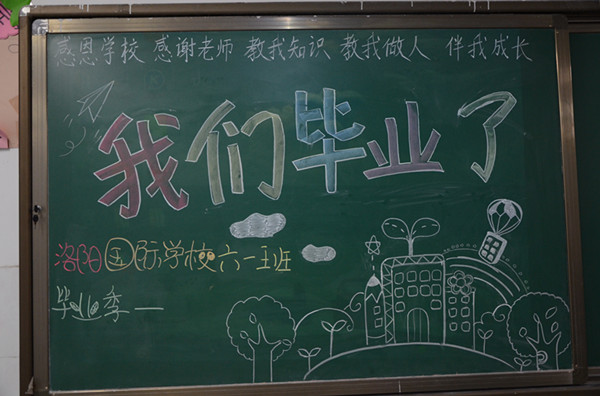 感恩学校 感谢老师 教我知识 教我做人 伴我成长
我们毕业了
洛阳国际学校六一班
毕业季一